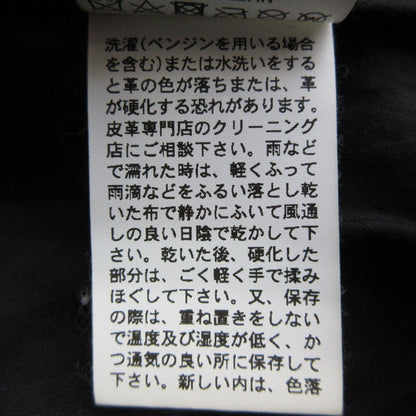 洗濯(ベンジンを用いる場合
を含む)または水洗いをする
と革の色が落ちまたは、革
が硬化する恐れがあります。
皮革専門店のクリーニング
店にご相談下さい。雨など
で濡れた時は、軽くふって
雨滴などをふるい落とし乾
いた布で静かにふいて風通
しの良い日陰で乾かして下
さい。乾いた後、硬化した
部分は、ごく軽く手で揉み
ほぐして下さい。又、保存
の際は、重ね置きをしない
で温度及び湿度が低く、か
つ通気の良い所に保存して
下さい。新しい内は、色落